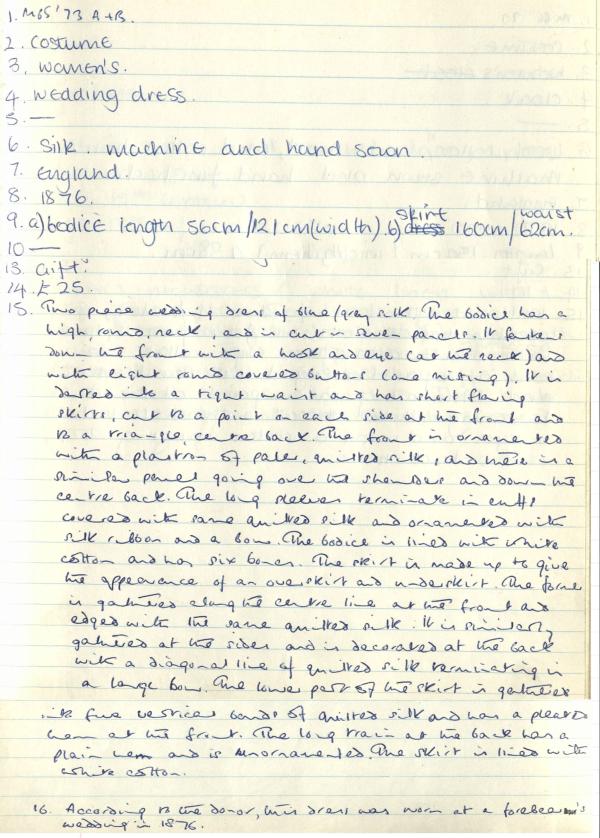 1. MGS '73 A+B.
2. Costume
3. Women's.
4. Wedding dress.
5. —
6. Silk. machine and hand sewn.
7. England.
8. 1876.
9. a) bodice length 56cm/121cm (width). b) dress skirt 160cm/ waist 62cm.
10 —
13. Gift.
14. £25
15. Two piece wedding dress of blue/gray silk. The bodice has a
high, round, neck, and is cut in seven panels. It fastens
down the front with a hook and eye (at the neck) and
with eight round covered buttons (one missing). It is
darted into a tight waist and has short flaring
skirts, cut to a point on each side at the front and
to a triangle, centre back. The front is ornamented
with a plastron of paler, quilted silk, and there is a
similar panel going over the shoulders and down the
centre back. The long sleeves terminate in cuffs
covered with same quilted silk and ornamented with
silk ribbon and a bow. The bodice is lined with white
cotton and has six bones. The skirt is made up to give
the appearance of an overskirt and underskirt. The former
is gathered along the centre line at the front and
edged with the same quilted silk. It is similarly
gathered at the sides and is decorated at the back
with a diagonal line of quilted silk terminating in
a large bow. The lower part of the skirt is gathered
into five vertical bands of quilted silk and has a pleated
hem at the front. The long train at the back has a
plain hem and is unornamented. The skirt is lined with
white cotton.
16. According to the donor, this dress was worn at a forebear's
wedding in 1876.